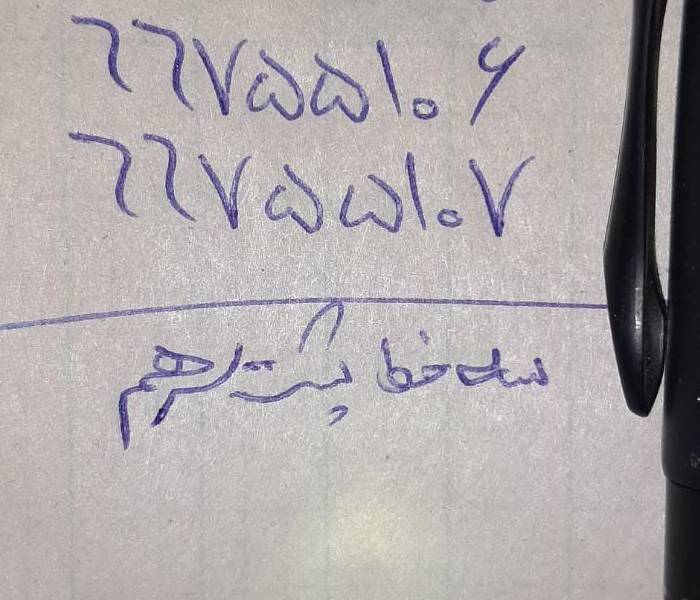 ۶۶۷۵۵۱۰۶
۶۶۷۵۵۱۰۷
سه خط پشت سر هم